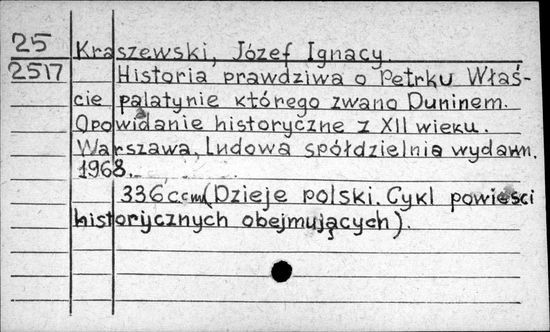 25
2517
Kraszewski, Józef Ignacy.
Historia prawdziwa o Petrku Właś-
cie palatynie którego zwano Duninem.
Opowiadanie historyczne z XII wieku.
Warszawa, Ludowa spółdzielnia wydawn.
1968.
336 c. cm (Dzieje polski. Cykl powieści
historycznych obejmujących).